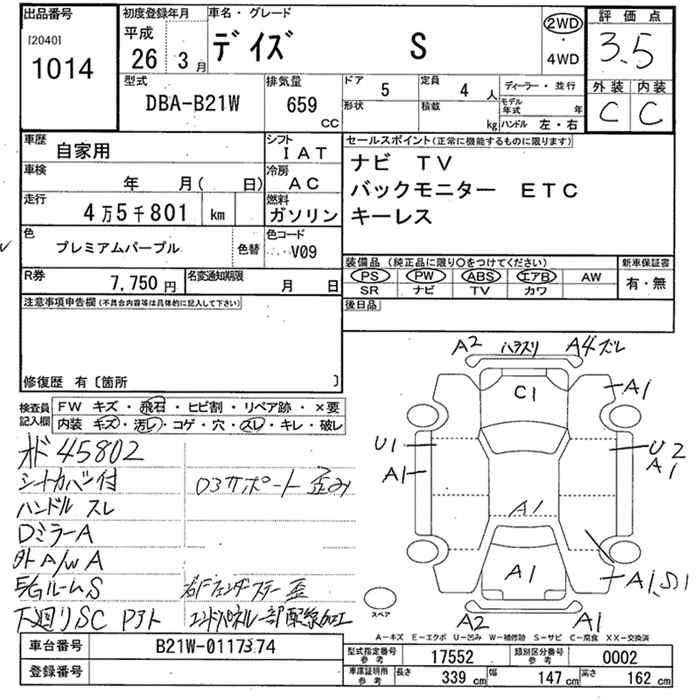 出品番号 初度登録年月 車名・グレード 評価点
[2040] 1014
平成 26 3月
デイズ S
2WD ・ 4WD
3.5
型式 DBA-B21W
排気量 659 CC
ドア 5 定員 4 人 ディーラー・並行
形状 積載 kg モデル年式 年
ハンドル 左・右
外装 内装
C C
車歴 自家用
シフト IAT
車検 年 月( 日)
冷房 AC
走行 4万5千801 km
燃料 ガソリン
色 プレミアムパープル 色替
色コード V09
R券 7,750円 名変通知期限 月 日
セールスポイント(正常に機能するものに限ります)
ナビ TV
バックモニター ETC
キーレス
装備品(純正品に限り○をつけてください) 新車保証書
PS PW ABS エアB AW 有・無
SR ナビ TV カワ
後日品
注意事項申告欄(不具合内容等は具体的に記入して下さい)
修復歴 有〔箇所 〕
検査員記入欄
FW キズ・飛石・ヒビ割・リペア跡・×要
内装 キズ・汚レ・コゲ・穴・スレ・キレ・破レ
オド 45802
シートカバー付 D3サポート歪み
ハンドル スレ
DミラーA
外A/W A
E/GルームS 右Fフェンダーステー歪
下廻りSC Pアト エンドパネル一部配線加工
A2 ハガスリ A4ズレ
C1
A1
U1
A1
U2
A1
A1
A1
A1,S1
スペア
A2 A1
A-キズ E-エクボ U-凹み W-補修跡 S-サビ C-腐食 XX-交換済
車台番号 B21W-0117374
登録番号
型式指定番号 参考 17552 類別区分番号 参考 0002
車庫証明用 参考 長さ 339 cm 幅 147 cm 高さ 162 cm